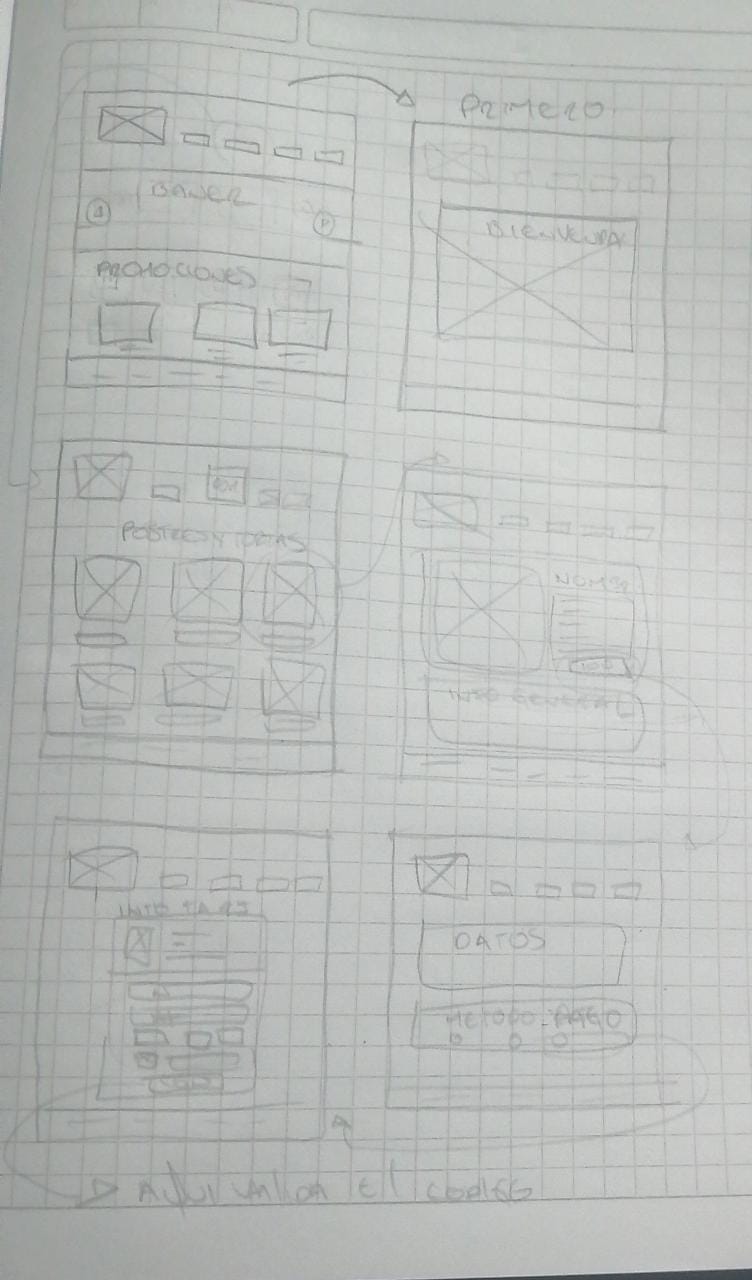 PRIMERO
BANER
PROMOCIONES
BIENVENIDA
POSTRES Y TORTAS
NOMBR
INFO GENERAL
INFO TARJ
DATOS
METODO - PAGO
AQUI VALIDA El CODIGO